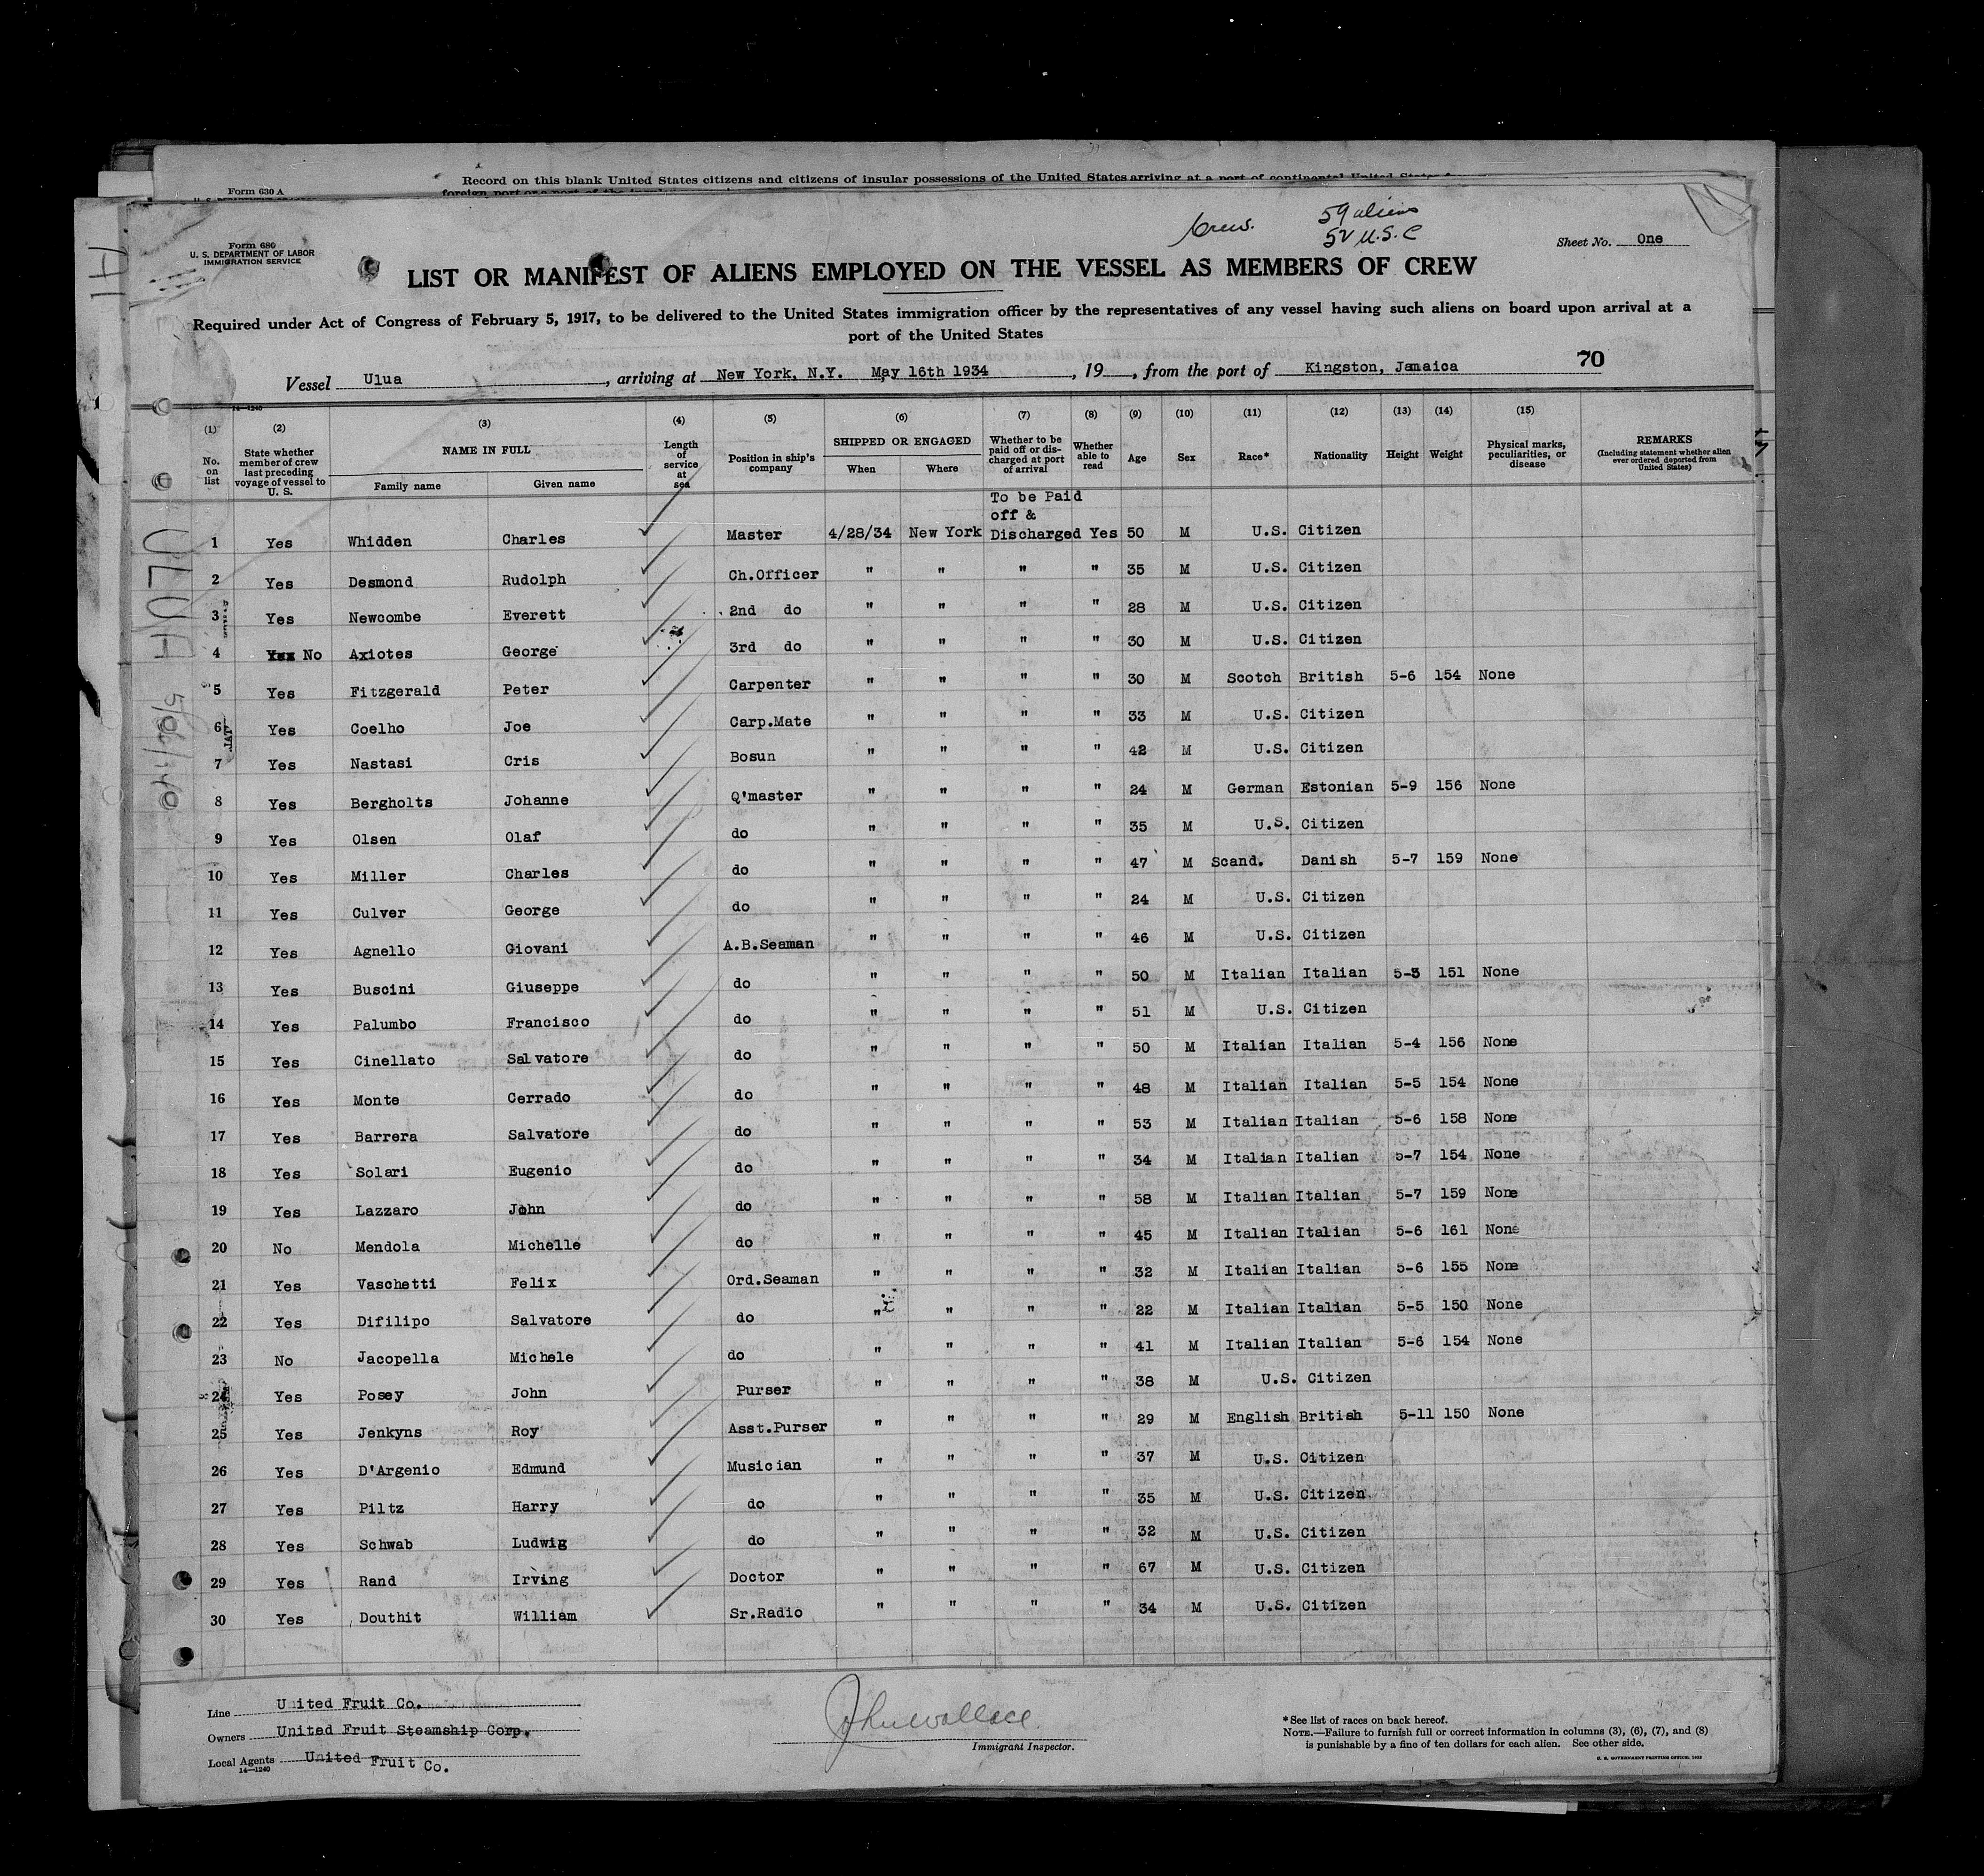 Form 630 A
Record on this blank United States citizens and citizens of insular possessions of the United States arriving at a port of continental United States
Crew.
59 aliens
52 U.S.C
Form 680
U. S. DEPARTMENT OF LABOR
IMMIGRATION SERVICE
Sheet No. One
LIST OR MANIFEST OF ALIENS EMPLOYED ON THE VESSEL AS MEMBERS OF CREW
Required under Act of Congress of February 5, 1917, to be delivered to the United States immigration officer by the representatives of any vessel having such aliens on board upon arrival at a
port of the United States
70
Vessel Ulua, arriving at New York, N.Y. May 16th 1934, 19, from the port of Kingston, Jamaica
14-1240
(1) (2) (3) (4) (5) (6) (7) (8) (9) (10) (11) (12) (13) (14) (15)
No. on list
State whether member of crew last preceding voyage of vessel to U. S.
NAME IN FULL
Family name Given name
Length of service at sea
Position in ship's company
SHIPPED OR ENGAGED
When Where
Whether to be paid off or discharged at port of arrival
Whether able to read
Age Sex Race* Nationality Height Weight
Physical marks, peculiarities, or disease
REMARKS
(Including statement whether alien ever ordered deported from United States)
To be Paid
off &
1 Yes Whidden Charles Master 4/28/34 New York Discharged Yes 50 M U.S. Citizen
2 Yes Desmond Rudolph Ch.Officer " " " " 35 M U.S. Citizen
3 Yes Newcombe Everett 2nd do " " " " 28 M U.S. Citizen
4 Yes No Axiotes George 3rd do " " " " 30 M U.S. Citizen
5 Yes Fitzgerald Peter Carpenter " " " " 30 M Scotch British 5-6 154 None
6 Yes Coelho Joe Carp.Mate " " " " 33 M U.S. Citizen
7 Yes Nastasi Cris Bosun " " " " 42 M U.S. Citizen
8 Yes Bergholts Johanne Q'master " " " " 24 M German Estonian 5-9 156 None
9 Yes Olsen Olaf do " " " " 35 M U.S. Citizen
10 Yes Miller Charles do " " " " 47 M Scand. Danish 5-7 159 None
11 Yes Culver George do " " " " 24 M U.S. Citizen
12 Yes Agnello Giovani A.B.Seaman " " " " 46 M U.S. Citizen
13 Yes Buscini Giuseppe do " " " " 50 M Italian Italian 5-3 151 None
14 Yes Palumbo Francisco do " " " " 51 M U.S. Citizen
15 Yes Cinellato Salvatore do " " " " 50 M Italian Italian 5-4 156 None
16 Yes Monte Cerrado do " " " " 48 M Italian Italian 5-5 154 None
17 Yes Barrera Salvatore do " " " " 53 M Italian Italian 5-6 158 None
18 Yes Solari Eugenio do " " " " 34 M Italian Italian 5-7 154 None
19 Yes Lazzaro John do " " " " 58 M Italian Italian 5-7 159 None
20 No Mendola Michelle do " " " " 45 M Italian Italian 5-6 161 None
21 Yes Vaschetti Felix Ord.Seaman " " " " 32 M Italian Italian 5-6 155 None
22 Yes Difilipo Salvatore do " " " " 22 M Italian Italian 5-5 150 None
23 No Jacopella Michele do " " " " 41 M Italian Italian 5-6 154 None
24 Yes Posey John Purser " " " " 38 M U.S. Citizen
25 Yes Jenkyns Roy Asst.Purser " " " " 29 M English British 5-11 150 None
26 Yes D'Argenio Edmund Musician " " " " 37 M U.S. Citizen
27 Yes Piltz Harry do " " " " 35 M U.S. Citizen
28 Yes Schwab Ludwig do " " " " 32 M U.S. Citizen
29 Yes Rand Irving Doctor " " " " 67 M U.S. Citizen
30 Yes Douthit William Sr.Radio " " " " 34 M U.S. Citizen
ULUA
Line United Fruit Co.
Owners United Fruit Steamship Corp.
Local Agents United Fruit Co.
14-1240
John Wallace
Immigrant Inspector.
*See list of races on back hereof.
NOTE.—Failure to furnish full or correct information in columns (3), (6), (7), and (8)
is punishable by a fine of ten dollars for each alien. See other side.
U. S. GOVERNMENT PRINTING OFFICE: 1932